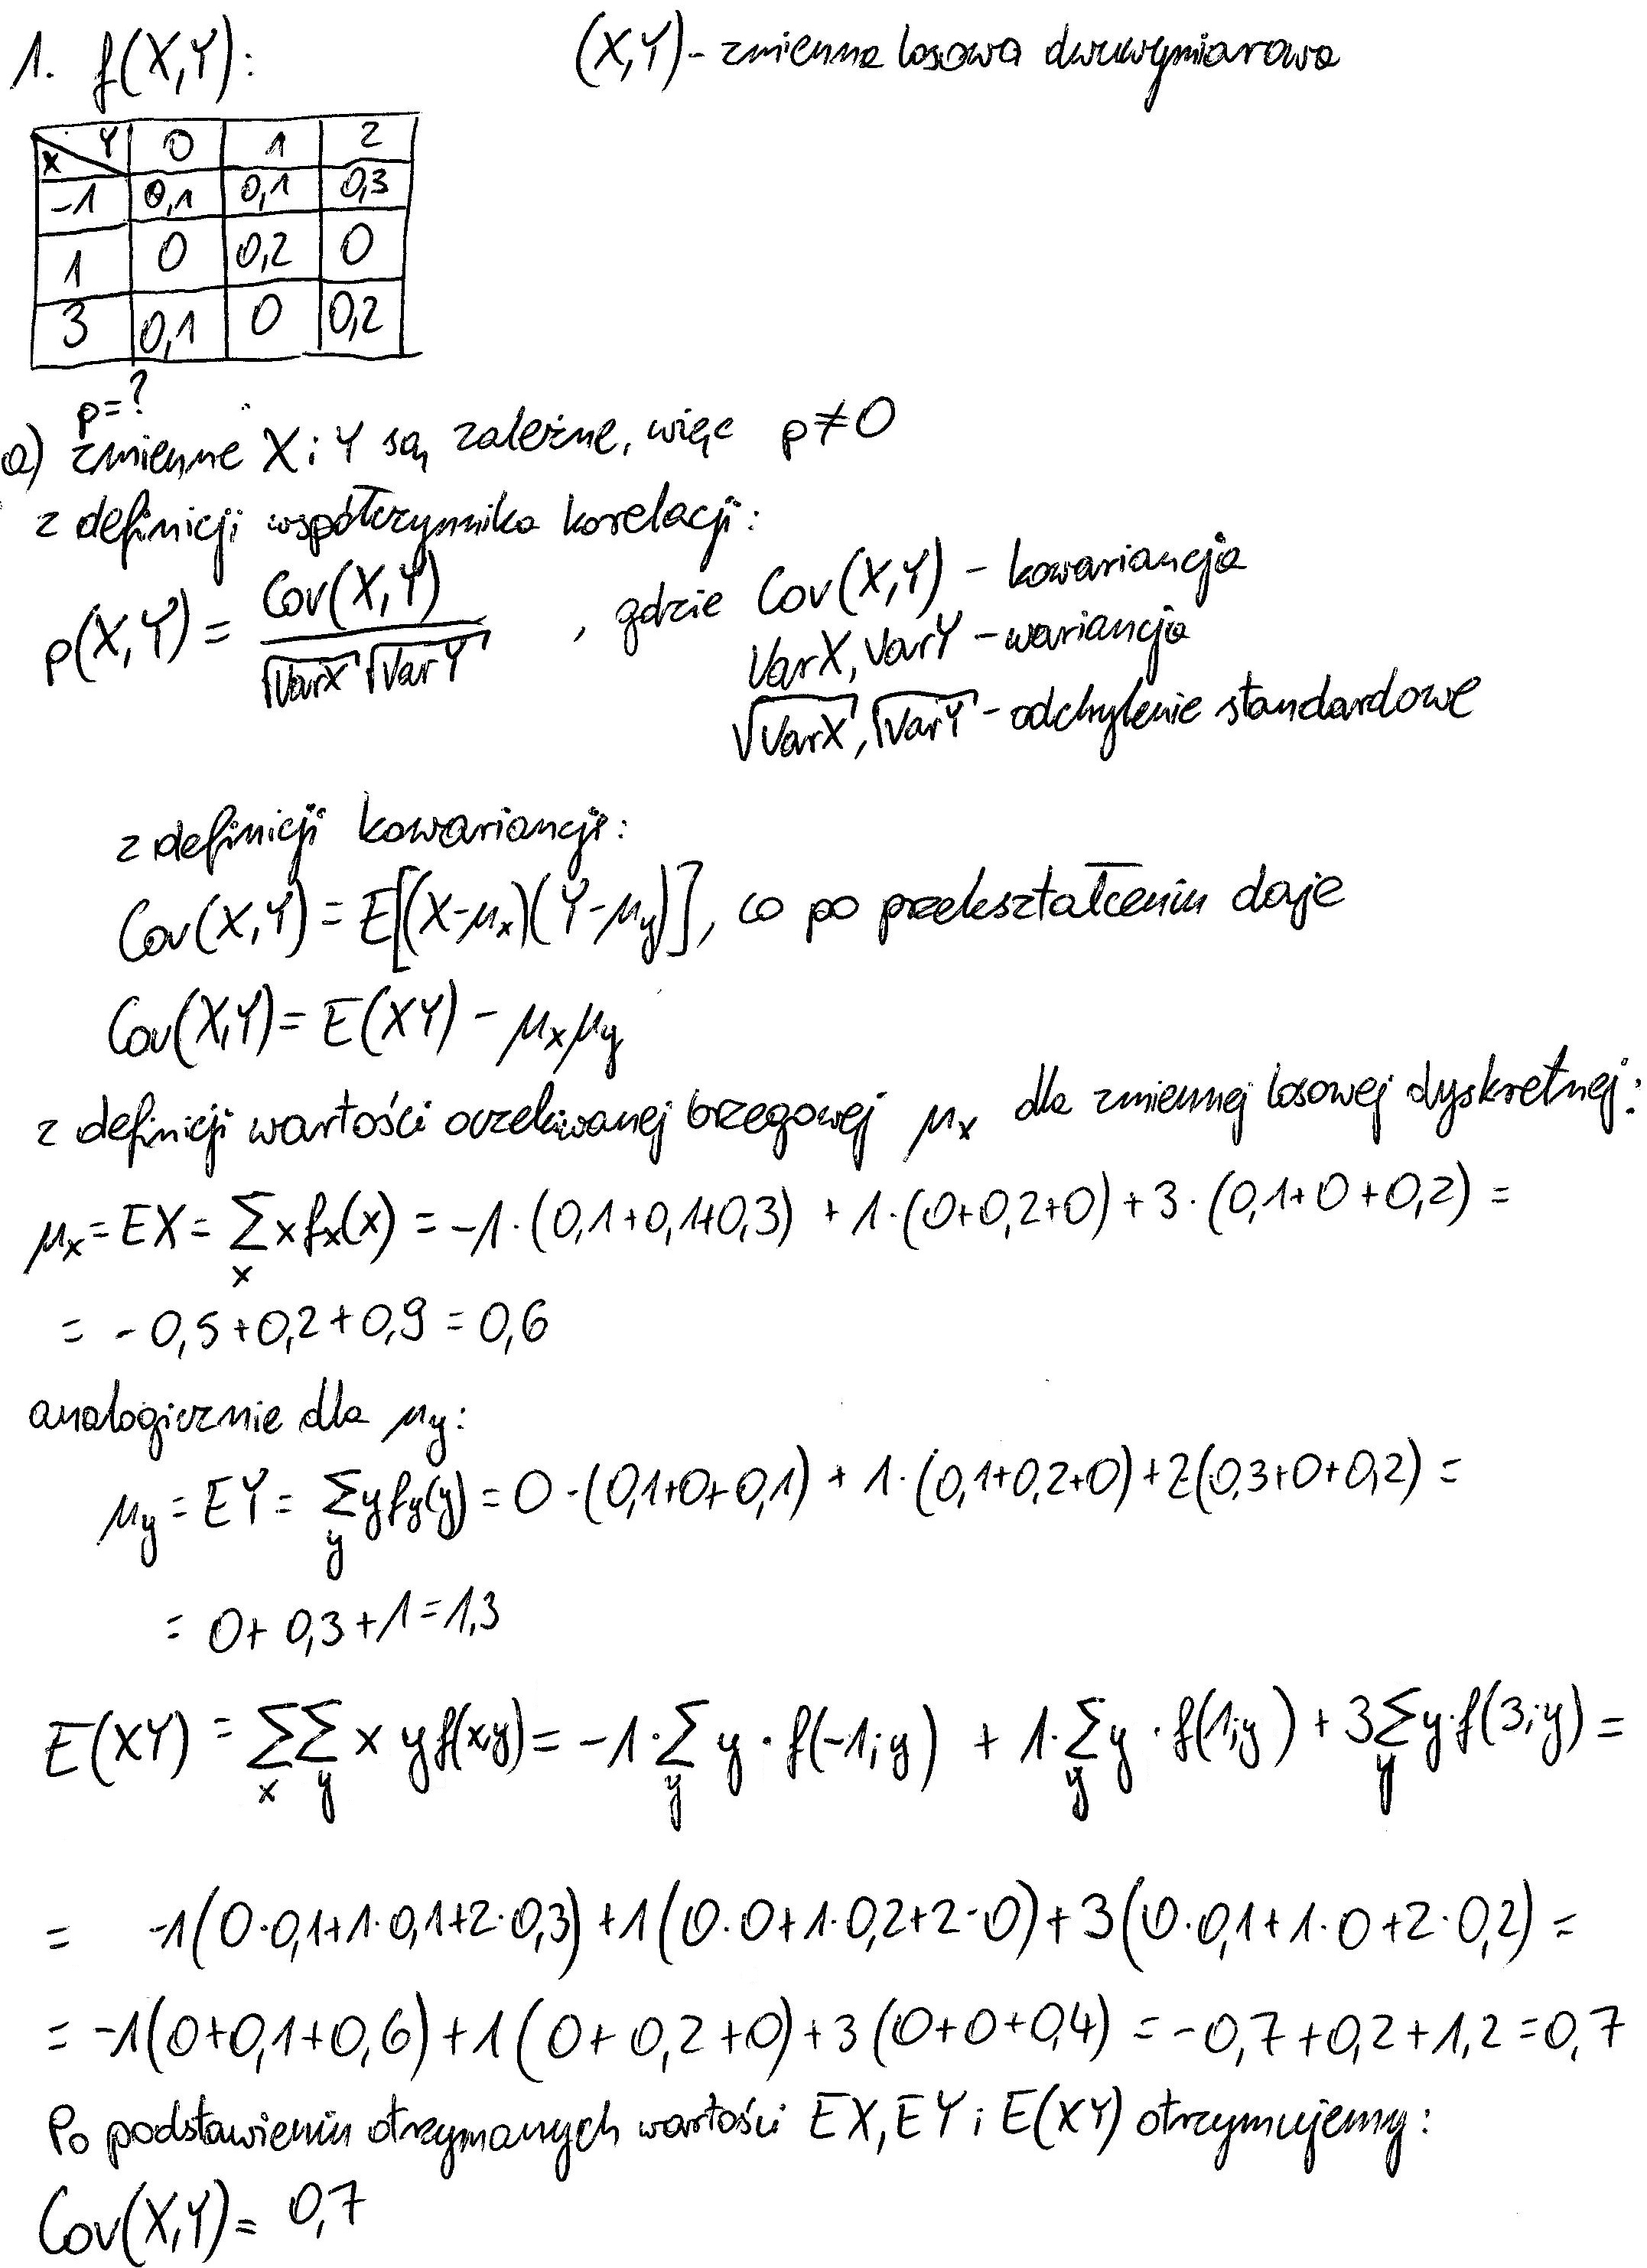 1. f(X,Y): (X,Y) - zmienna losowa dwuwymiarowa
X Y 0 1 2
-1 0,1 0,1 0,3
1 0 0,2 0
3 0,1 0 0,2
ρ=?
a) zmienne X i Y są zależne, więc ρ≠0
z definicji współczynnika korelacji:
ρ(X,Y) = Cov(X,Y) / √VarX √VarY , gdzie Cov(X,Y) - kowariancja
VarX, VarY - wariancja
√VarX, √VarY - odchylenie standardowe
z definicji kowariancji:
Cov(X,Y) = E[(X-μx)(Y-μy)], co po przekształceniu daje
Cov(X,Y) = E(XY) - μxμy
z definicji wartości oczekiwanej brzegowej μx dla zmiennej losowej dyskretnej:
μx = EX = ∑x x fx(x) = -1·(0,1+0,1+0,3) + 1·(0+0,2+0) + 3·(0,1+0+0,2) =
= -0,5+0,2+0,9 = 0,6
analogicznie dla μy:
μy = EY = ∑y y fy(y) = 0·(0,1+0+0,1) + 1·(0,1+0,2+0) + 2(0,3+0+0,2) =
= 0+0,3+1 = 1,3
E(XY) = ∑x ∑y x y f(x,y) = -1·∑y y·f(-1;y) + 1·∑y y·f(1;y) + 3∑y y·f(3;y) =
= -1(0·0,1+1·0,1+2·0,3) + 1(0·0+1·0,2+2·0) + 3(0·0,1+1·0+2·0,2) =
= -1(0+0,1+0,6) + 1(0+0,2+0) + 3(0+0+0,4) = -0,7+0,2+1,2 = 0,7
Po podstawieniu otrzymanych wartości EX, EY i E(XY) otrzymujemy:
Cov(X,Y) = 0,7